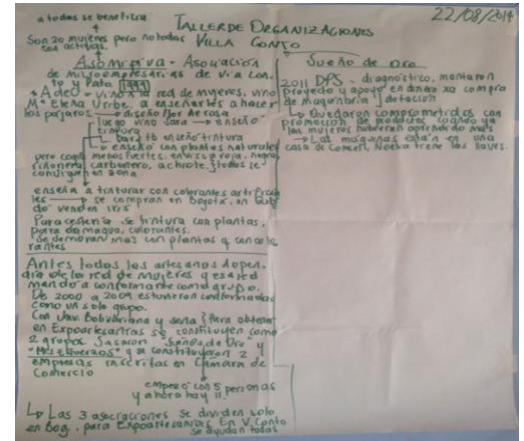 22/08/2014
TALLER DE ORGANIZACIONES
VILLA CONTO
a todas se beneficia
Son 20 mujeres pero no todas
son activas.
Asomipiva - Asociación
de microempresarias de Villa Con-
to y Pato 1999
la red de mujeres, vino
Mª Elena Uribe, a enseñarles a hacer
los pájaros diseño
luego vino Sara → enseñó
tintura
enseñó tintura
enseñó con plantas naturales
pero menos fuertes,
carbonero, achiote } todos se
consiguen en zona
enseña a tinturar con colorantes artificia-
les → se compran en Bogotá, en Quib
do venden iris
Para cestería se tintura con plantas,
para damagua, colorantes.
Se demoran más con plantas q con colo
rantes
Antes todos los artesanos depen-
día de la red de mujeres y esa red
mandó a conformarse como grupo.
De 2000 a 2009 estuvieron conformadas
como un solo grupo.
Con Univ. Bolivariana y Sena } Para obtener
en Expoartesanías se constituyen como
2 grupos. Sacaron "Sueño de Oro" y
"Mis Esfuerzos" y se constituyeron 2
empresas inscritas en Cámara de
Comercio
empezó con 5 personas
y ahora hay 11.
↳ Las 3 asociaciones se dividen solo
en Bog. para Expoartesanías. En V. Conto
se ayudan todas
Sueño de Oro
2011 DPS - diagnóstico, montaron
proyecto y apoyo en dinero xa compra
de maquinaria } dotación
↳ Quedaron comprometidos con
promoción de productos cuando ya
las mujeres hubieran aprendido más
→ Las máquinas están en una
casa de Comerl. Noelva tiene las llaves.